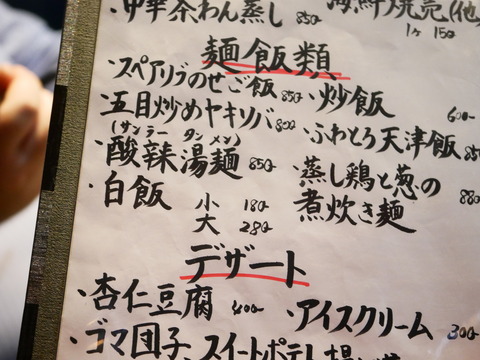 ・中華茶わん蒸し 850
海鮮焼売(他
1ヶ 150
麺飯類
・スペアリブのせご飯 850
・炒飯 600
・五目炒めヤキソバ 800
・ふわとろ天津飯 850
(サンラー タンメン)
・酸辣湯麺 850
・蒸し鶏と葱の
煮炊き麺 880
・白飯 小 180
大 280
デザート
・杏仁豆腐 400
・アイスクリーム 300
・ゴマ団子
・スイートポテト